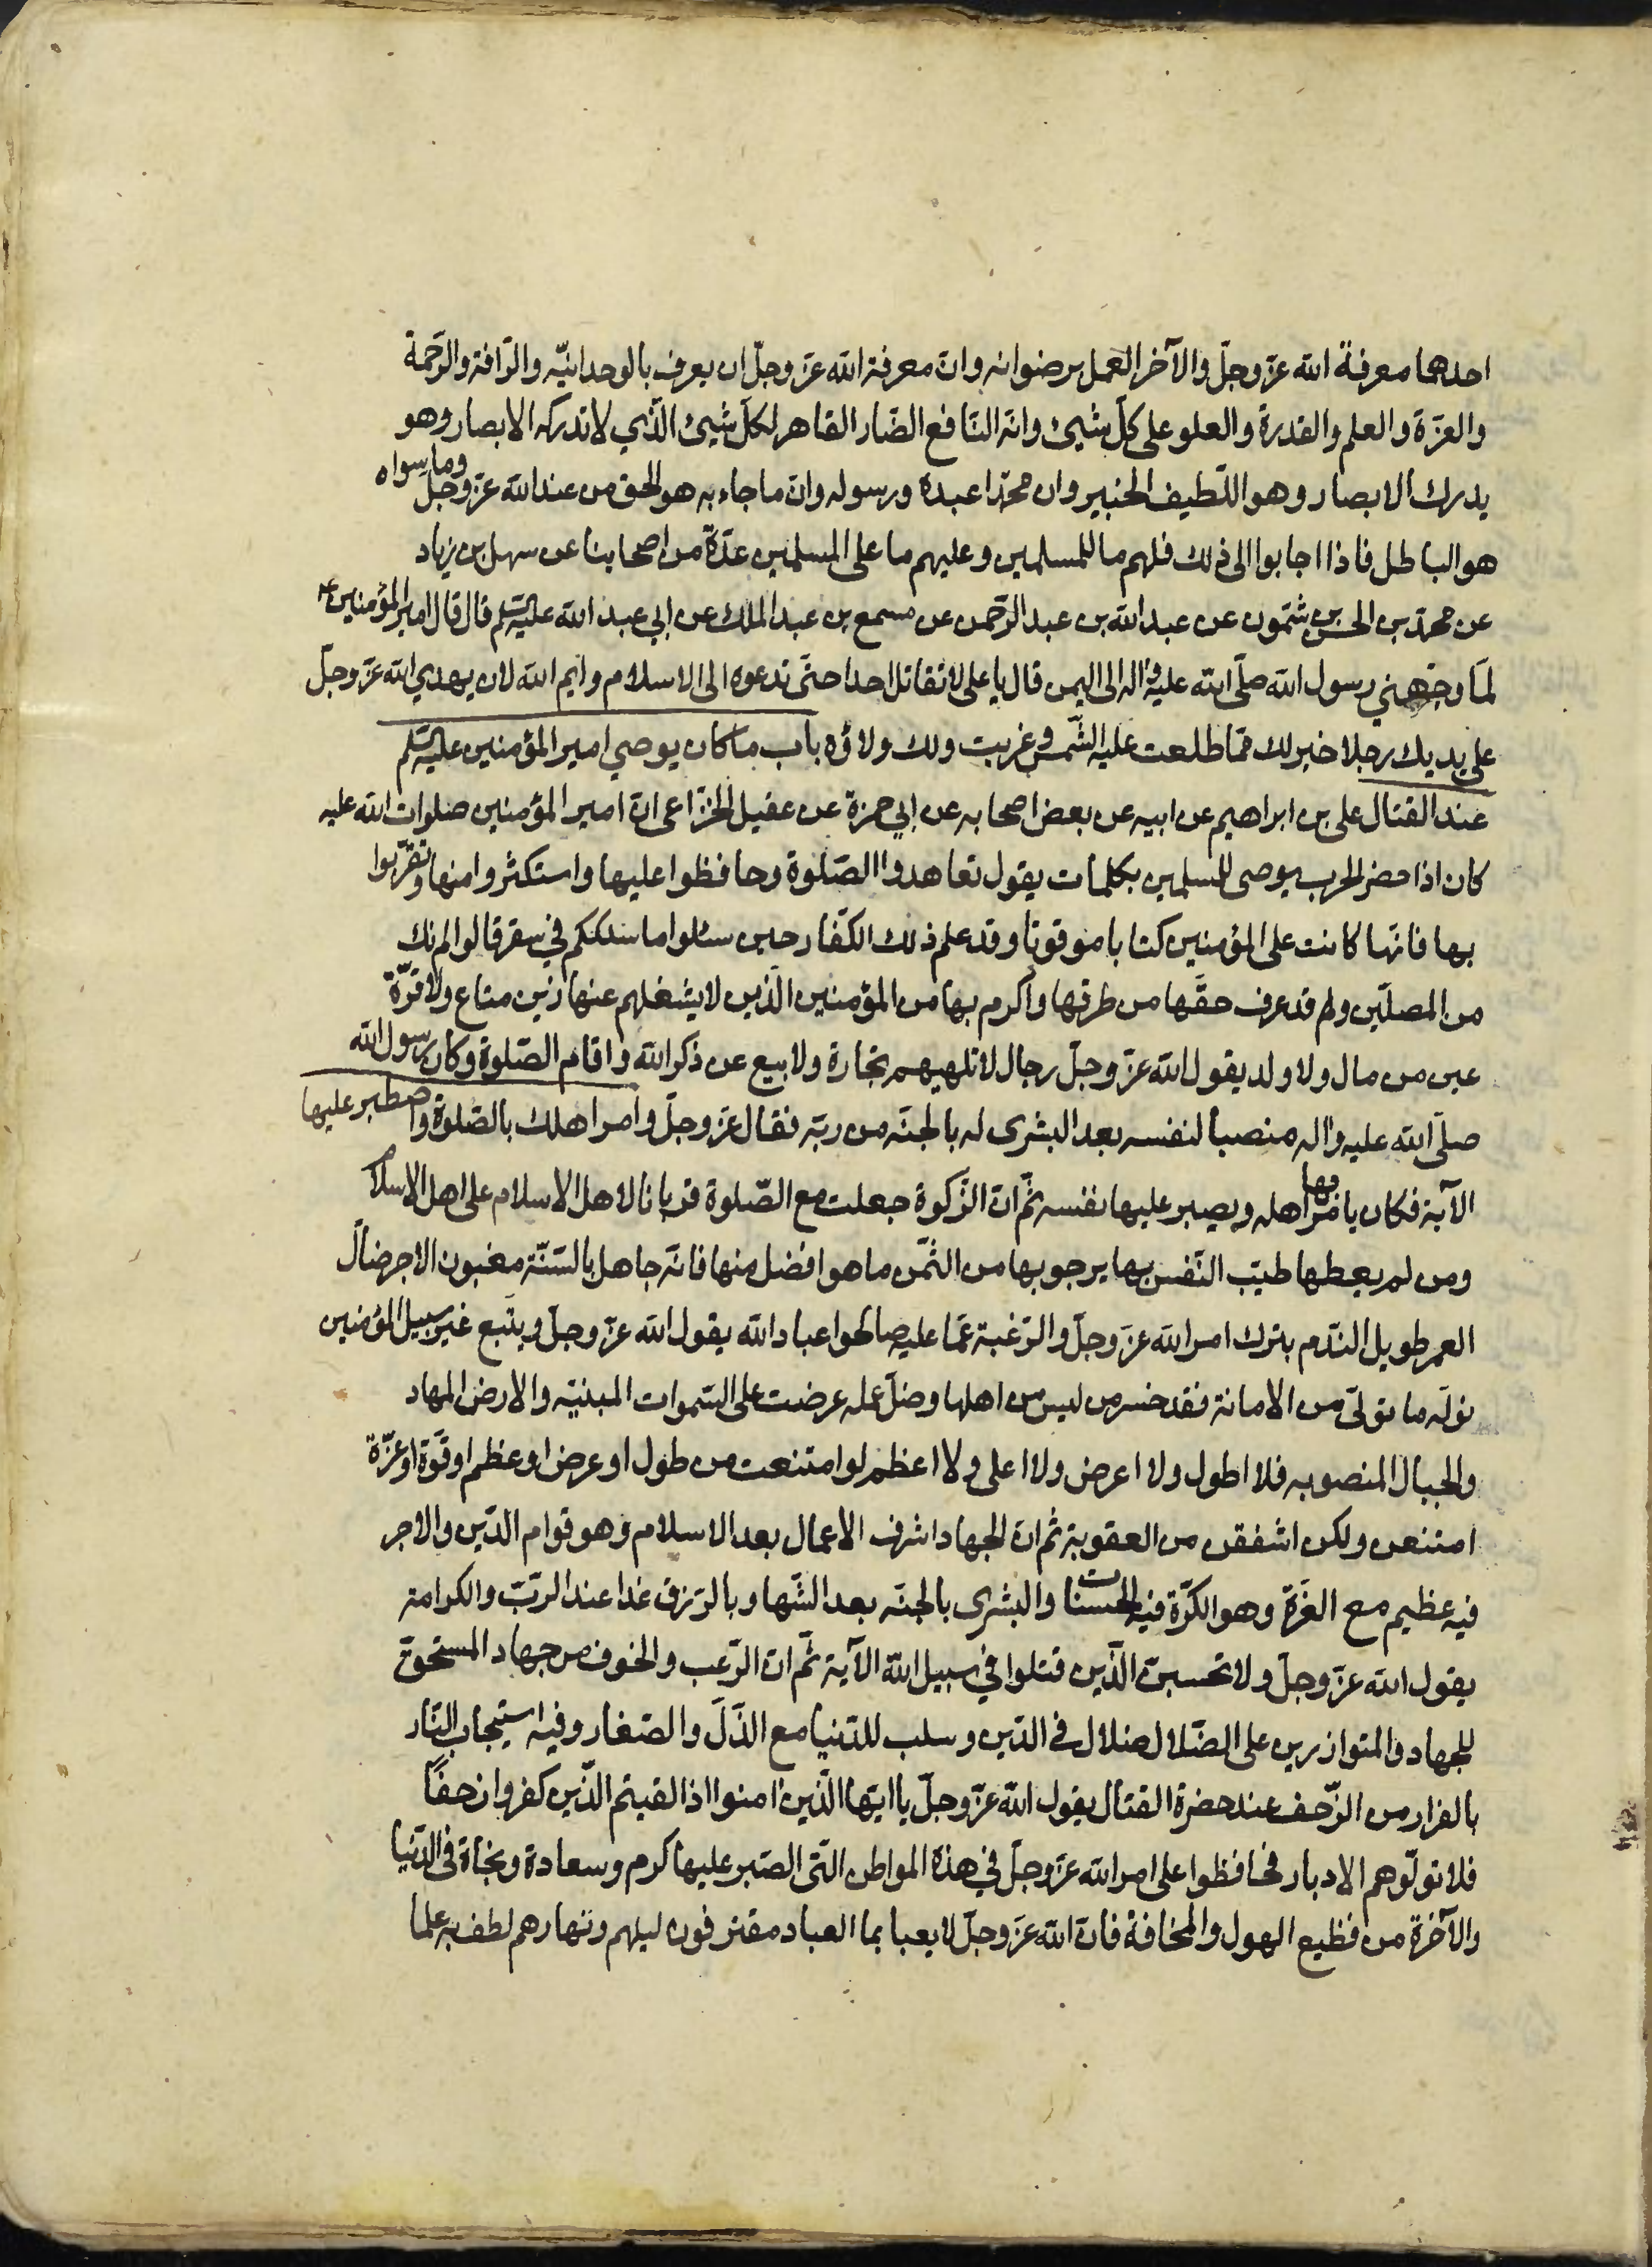 احدهما معرفة الله عزّ وجلّ والآخر العمل برضوانه وانّ معرفة الله عزّ وجلّ ان يعرف بالوحدانيّه والرّافة والرّحمة
والعزّة والعلم والقدرة والعلو على كلّ شيئ وانّه النّافع الضّار القاهر لكلّ شيئ الّذي لا تدركه الابصار وهو
يدرك الابصار وهو اللّطيف الخبير وان محمّدا عبده ورسوله وانّ ما جاء به هو الحق من عند الله عزّ وجلّ وما سواه
هو الباطل فاذا اجابوا الى ذلك فلهم ما للمسلمين وعليهم ما على المسلمين عدّة من اصحابنا عن سهل بن زياد
عن محمّد بن الحسن بن شتمون عن عبد الله بن عبد الرّحمن عن مسمع بن عبد الملك عن ابي عبد الله عليه السّلم قال قال امير المؤمنين ع
لمّا وجّهني رسول الله صلّى الله عليه واله الى اليمن قال يا على لا تقاتل احدا حتّى تدعوه الى الاسلام وايم الله لان يهدي الله عزّ وجلّ
على يديك رجلا خير لك ممّا طلعت عليه الشّمس وغربت ولك ولاؤه باب ما كان يوصي امير المؤمنين عليه السّلم
عند القتال على بن ابراهيم عن ابيه عن بعض اصحابه عن ابي حمزة عن عقيل الخزّاعى انّ امير المؤمنين صلوات الله عليه
كان اذا حضر الحرب يوصى للمسلمين بكلمات يقول تعاهدوا الصّلوة وحافظوا عليها واستكثروا منها وتقرّبوا
بها فانّها كانت على المؤمنين كتابا موقوتا وقد علم ذلك الكفّار حين سئلوا ما سلككم في سقر قالوا لم نك
من المصلّين ولم قد عرف حقّها من طرقها واكرم بها من المؤمنين الّذين لا يشغلهم عنها زين متاع ولا قرّة
عين من مال ولا ولد يقول الله عزّ وجلّ رجال لا تلهيهم تجارة ولا بيع عن ذكر الله واقام الصّلوة وكان رسول الله
صلّى الله عليه واله منصبا لنفسه بعد البشرى له بالجنّه من ربّه فقال عزّ وجلّ وامر اهلك بالصّلوة واصطبر عليها
الآية فكان يامر بها اهله ويصبر عليها نفسه ثمّ انّ الزّكوة جعلت مع الصّلوة قربانا لاهل الاسلام على اهل الاسلام
ومن لم يعطها طيّب النّفس بها يرجو بها من الثّمن ما هو افضل منها فانّه جاهل بالسّنّة مغبون الاجر ضالّ
العمر طويل النّدم بترك امر الله عزّ وجلّ والرّغبة عمّا عليه صالحوا عباد الله يقول الله عزّ وجلّ ويتّبع غير سبيل المؤمنين
نولّه ما تولّى من الامانة فقد خسر من ليس من اهلها وضلّ عمله عرضت على السّموات المبنيّه والارض المهاد
والجبال المنصوبه فلا اطول ولا اعرض ولا اعلى ولا اعظم لو امتنعت من طول او عرض او عظم او قوّة او عزّة
امتنعن ولكن اشفقن من العقوبة ثم انّ الجهاد اشرف الاعمال بعد الاسلام وهو قوام الدّين والاجر
فيه عظيم مع العزّة وهو الكرّة فيه الحسنات والبشرى بالجنّه بعد الشّها وبالرّزق غدا عند الرّبّ والكرامة
يقول الله عزّ وجلّ ولا تحسبنّ الّذين قتلوا في سبيل الله الآية ثمّ انّ الرّعب والخوف من جهاد المستحقّ
للجهاد والمتوازرين على الضّلال ضلال فى الدّين وسلب للدّنيا مع الذّلّ والصّغار وفيه استيجاب النّار
بالفرار من الزّحف عند حضرة القتال يقول الله عزّ وجلّ يا ايّها الّذين امنوا اذا لقيتم الّذين كفروا زحفاً
فلا تولّوهم الادبار فحافظوا على امر الله عزّ وجلّ في هذه المواطن الّتى الصّبر عليها كرم وسعادة ونجاة فى الدّنيا
والآخرة من فظيع الهول والمخافة فانّ الله عزّ وجلّ لا يعبا بما العباد مقترفون ليلهم ونهارهم لطف به علما